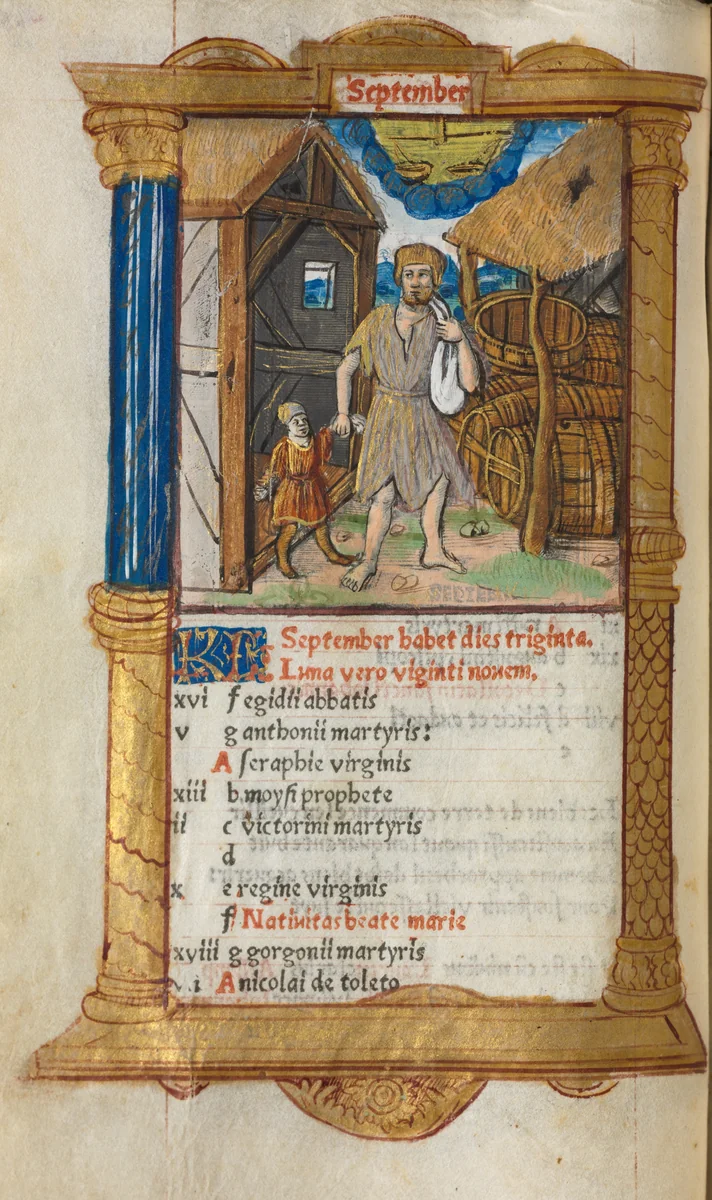 September
KL September habet dies triginta.
Luna vero viginti novem.
xvi f egidii abbatis
v g anthonii martyris:
A seraphie virginis
xiii b. moysi prophete
ii c victorini martyris
d
x e regine virginis
f Nativitas beate marie
xviii g gorgonii martyris
vii A nicolai de toleto